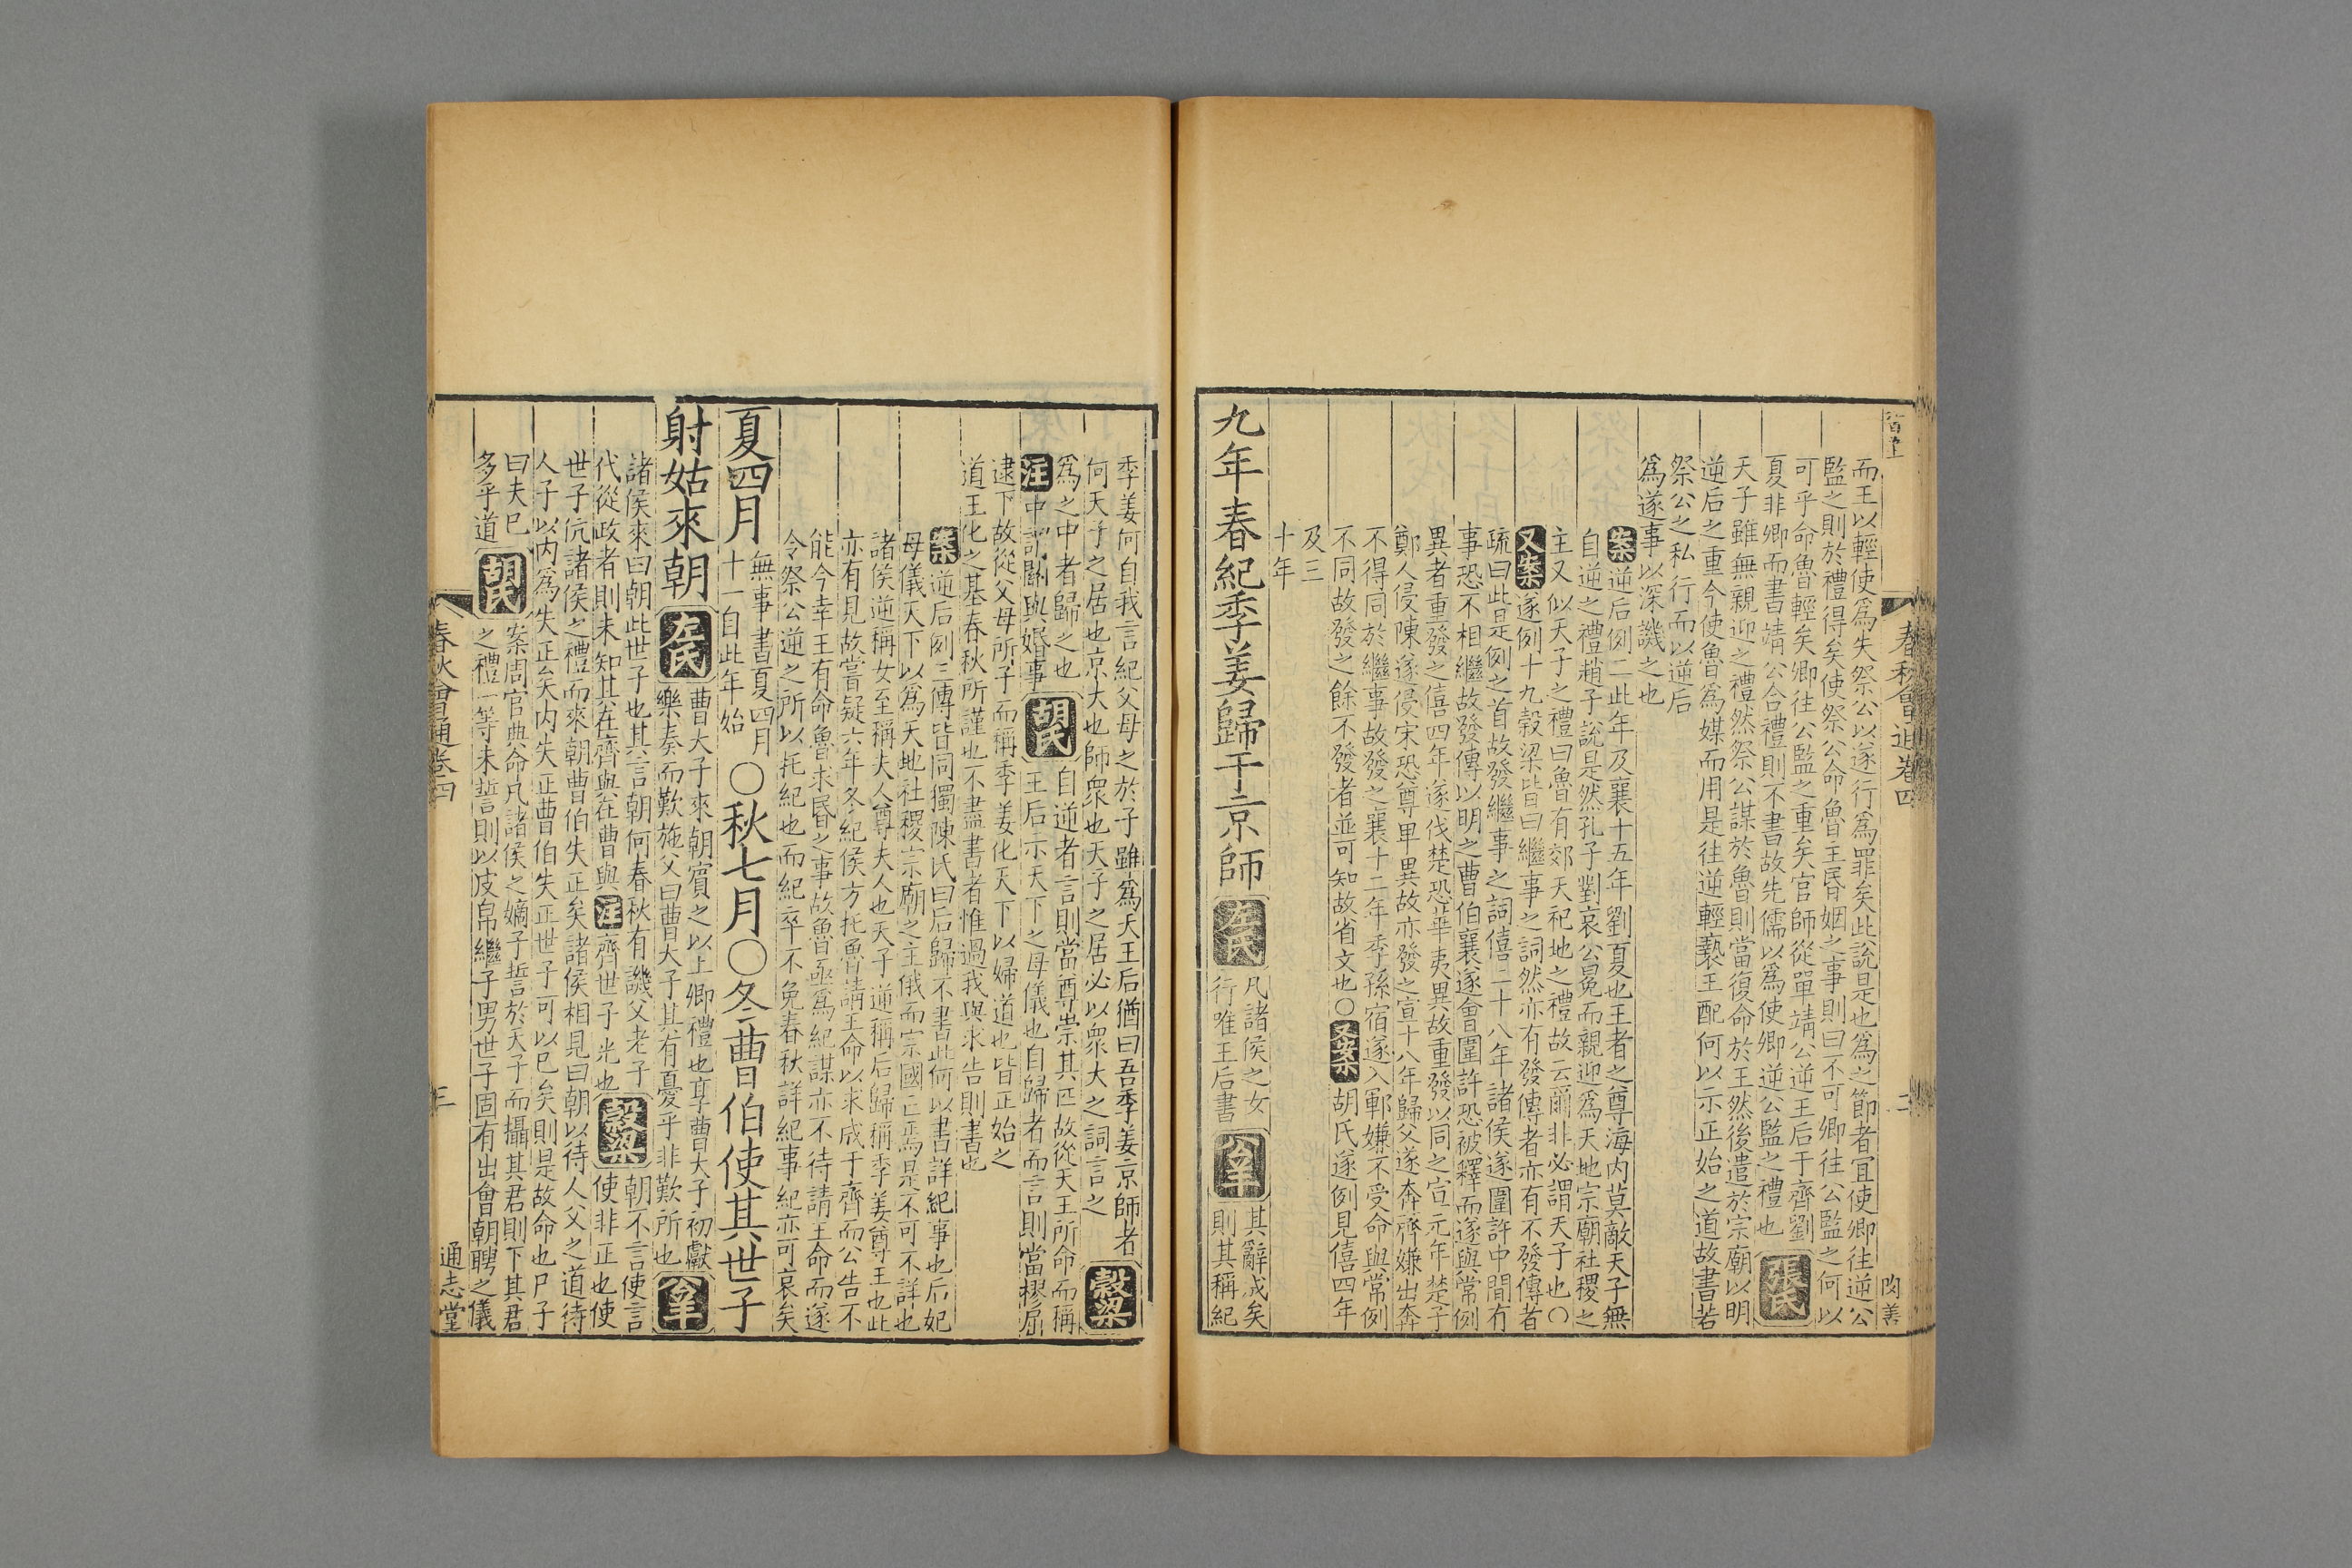 春秋會通卷四
二
而王以輕使爲失祭公以遂行爲罪矣此說是也爲之節者宜使卿往逆公
監之則於禮得矣使祭公命魯主昬姻之事則曰不可卿往公監之何以
可乎命魯輕矣卿往公監之重矣官師從單靖公逆王后于齊劉
夏非卿而書靖公合禮則不書故先儒以爲使卿逆公監之禮也
張氏
天子雖無親迎之禮然祭公謀於魯則當復命於王然後遣於宗廟以明
逆后之重今使魯爲媒而用是往逆輕褻王配何以示正始之道故書若
祭公之私行而以逆后
爲遂事以深譏之也
案逆后例二此年及襄十五年劉夏也王者之尊海内莫敵天子無
自逆之禮趙子說是然孔子對哀公冕而親迎爲天地宗廟社稷之
主又似天子之禮曰魯有郊天祀地之禮故云爾非必謂天子也〇
又案遂例十九穀梁皆曰繼事之詞然亦有發傳者亦有不發傳者
疏曰此是例之首故發繼事之詞僖二十八年諸侯遂圍許中間有
事恐不相繼故發傳以明之曹伯襄遂會圍許恐被釋而遂與常例
異者重發之僖四年遂伐楚恐華夷異故重發以同之宣元年楚子
鄭人侵陳遂侵宋恐尊卑異故亦發之宣十八年歸父遂奔齊嫌出奔
不得同於繼事故發之襄十二年季孫宿遂入鄆嫌不受命與常例
不同故發之餘不發者並可知故省文也〇又案胡氏遂例見僖四年
及三
十年
九年春紀季姜歸于京師 左氏 凡諸侯之女
行唯王后書 公羊 其辭成矣
則其稱紀
季姜何自我言紀父母之於子雖爲天王后猶曰吾季姜京師者
何天子之居也京大也師衆也天子之居必以衆大之詞言之 穀梁
爲之中者歸之也 自逆者言則當尊崇其匹故從天王所命而稱
注中謂關與婚事 胡氏 王后示天下之母儀也自歸者而言則當樛屈
逮下故從父母所子而稱季姜化天下以婦道也皆正始之
道王化之基春秋所謹也不盡書者惟過我與來告則書也
案逆后例三傳皆同獨陳氏曰后歸不書此何以書詳紀事也后妃
母儀天下以爲天地社稷宗廟之主俄而宗國亡焉是不可不詳也
諸侯逆稱女至稱夫人尊夫人也天子逆稱后歸稱季姜尊王也此
亦有見故嘗疑六年冬紀侯方托魯請王命以求成于齊而公告不
能今幸王有命魯求昬之事故魯亟爲紀謀亦不待請王命而遂
令祭公逆之所以托紀也而紀卒不免春秋詳紀事紀亦可哀矣
夏四月 無事書夏四月
十一自此年始 〇秋七月〇冬曹伯使其世子
射姑來朝 左氏 曹大子來朝賓之以上卿禮也享曹大子初獻
樂奏而歎施父曰曹大子其有憂乎非歎所也 公羊
諸侯來曰朝此世子也其言朝何春秋有譏父老子
代從政者則未知其在齊與在曹與 注齊世子光也 穀梁 朝不言使言
使非正也使
世子伉諸侯之禮而來朝曹伯失正矣諸侯相見曰朝以待人父之道待
人子以内爲失正矣内失正曹伯失正世子可以已矣則是故命也尸子
曰夫已
多乎道 胡氏 案周官典命凡諸侯之嫡子誓於天子而攝其君則下其君
之禮一等未誓則以皮帛繼子男世子固有出會朝聘之儀
春秋會通卷四
三
通志堂